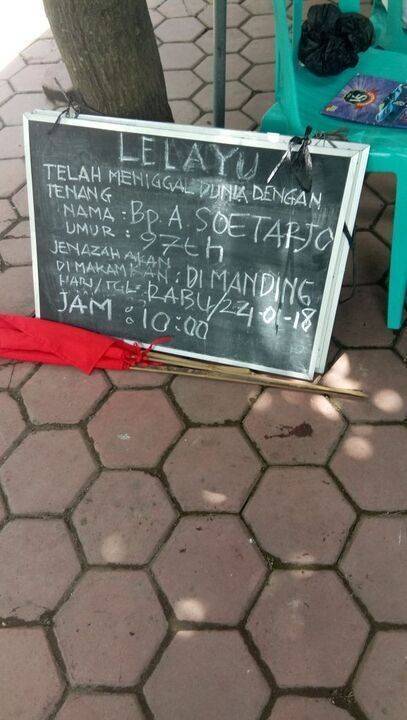 LELAYU
TELAH MENIGGAL DUNIA DENGAN
TENANG
NAMA : Bp. A. SOETARJO
UMUR : 97th
JENAZAH AKAN
DI MAKAMKAN : DI MANDING
HARI/TGL : RABU/24-01-18
JAM : 10:00